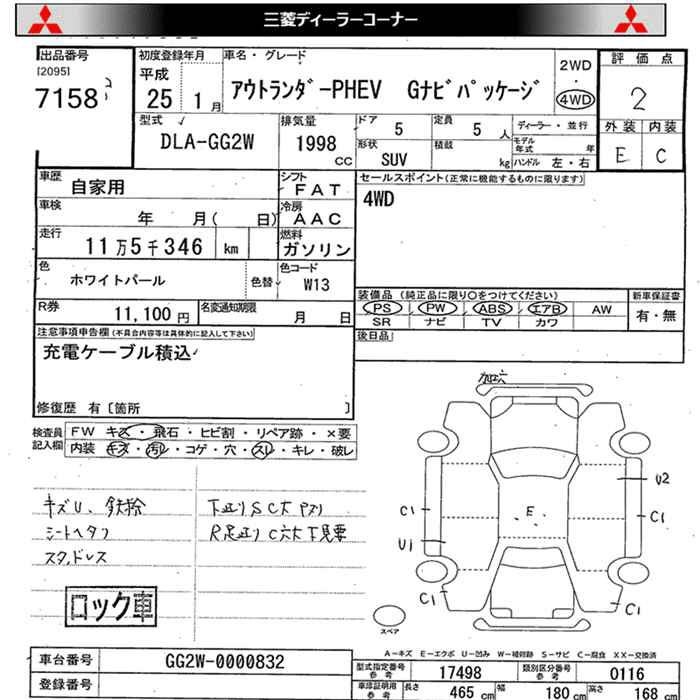 三菱ディーラーコーナー
出品番号
[2095]
7158
初度登録年月
平成
25 1月
車名・グレード
アウトランダーPHEV Gナビパッケージ
2WD
・
4WD
評価点
2
外装 内装
E C
型式
DLA-GG2W
排気量
1998
CC
ドア
5
定員
5 人
ディーラー・並行
形状
SUV
積載
kg
モデル年式 年
ハンドル 左・右
車歴
自家用
シフト
FAT
セールスポイント(正常に機能するものに限ります)
4WD
車検
年 月( 日)
冷房
AAC
走行
11万5千346 km
燃料
ガソリン
色
ホワイトパール
色替
色コード
W13
装備品(純正品に限り〇をつけてください)
PS PW ABS エアB AW
SR ナビ TV カワ
新車保証書
有・無
R券
11,100円
名変通知期限
月 日
後日品
注意事項申告欄(不具合内容等は具体的に記入して下さい)
充電ケーブル積込
修復歴 有〔箇所 〕
検査員記入欄
FW キズ・飛石・ヒビ割・リペア跡・×要
内装 キズ・汚レ・コゲ・穴・スレ・キレ・破レ
キズU、鉄粉
シートヘタリ
スタッドレス
ロック車
加工穴
U2
C1
E
C1
U1
C1
C1
スペア
A-キズ E-エクボ U-凹み W-補修跡 S-サビ C-腐食 XX-交換済
車台番号
GG2W-0000832
登録番号
型式指定番号
参考
17498
類別区分番号
参考
0116
車庫証明用
参考
長さ 465 cm
幅 180 cm
高さ 168 cm